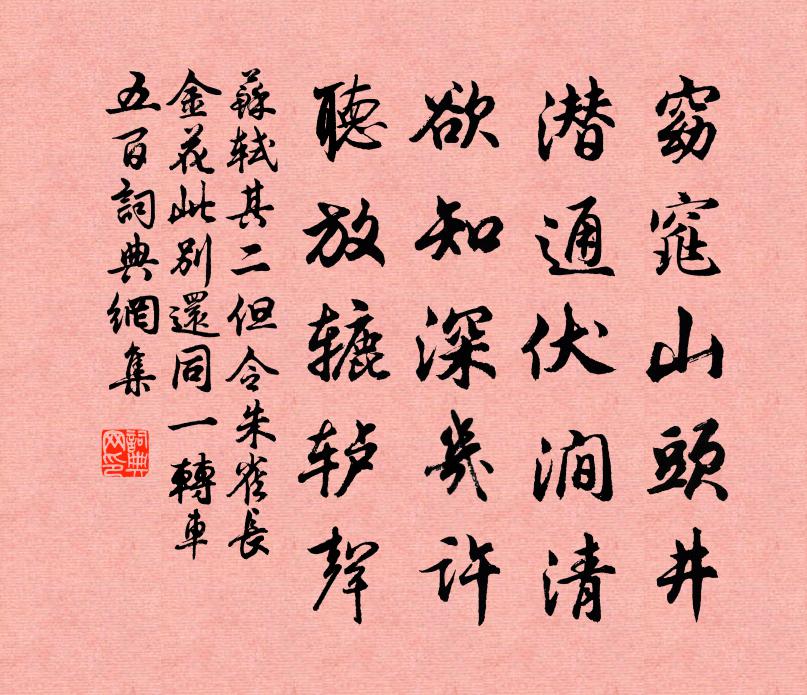 窈窕山頭井
潜通伏涧清
欲知深幾许
聽放辘轳聲
蘇轼其二但令朱雀長
金花此别還同一轉車
五百詞典網集
詞典网印